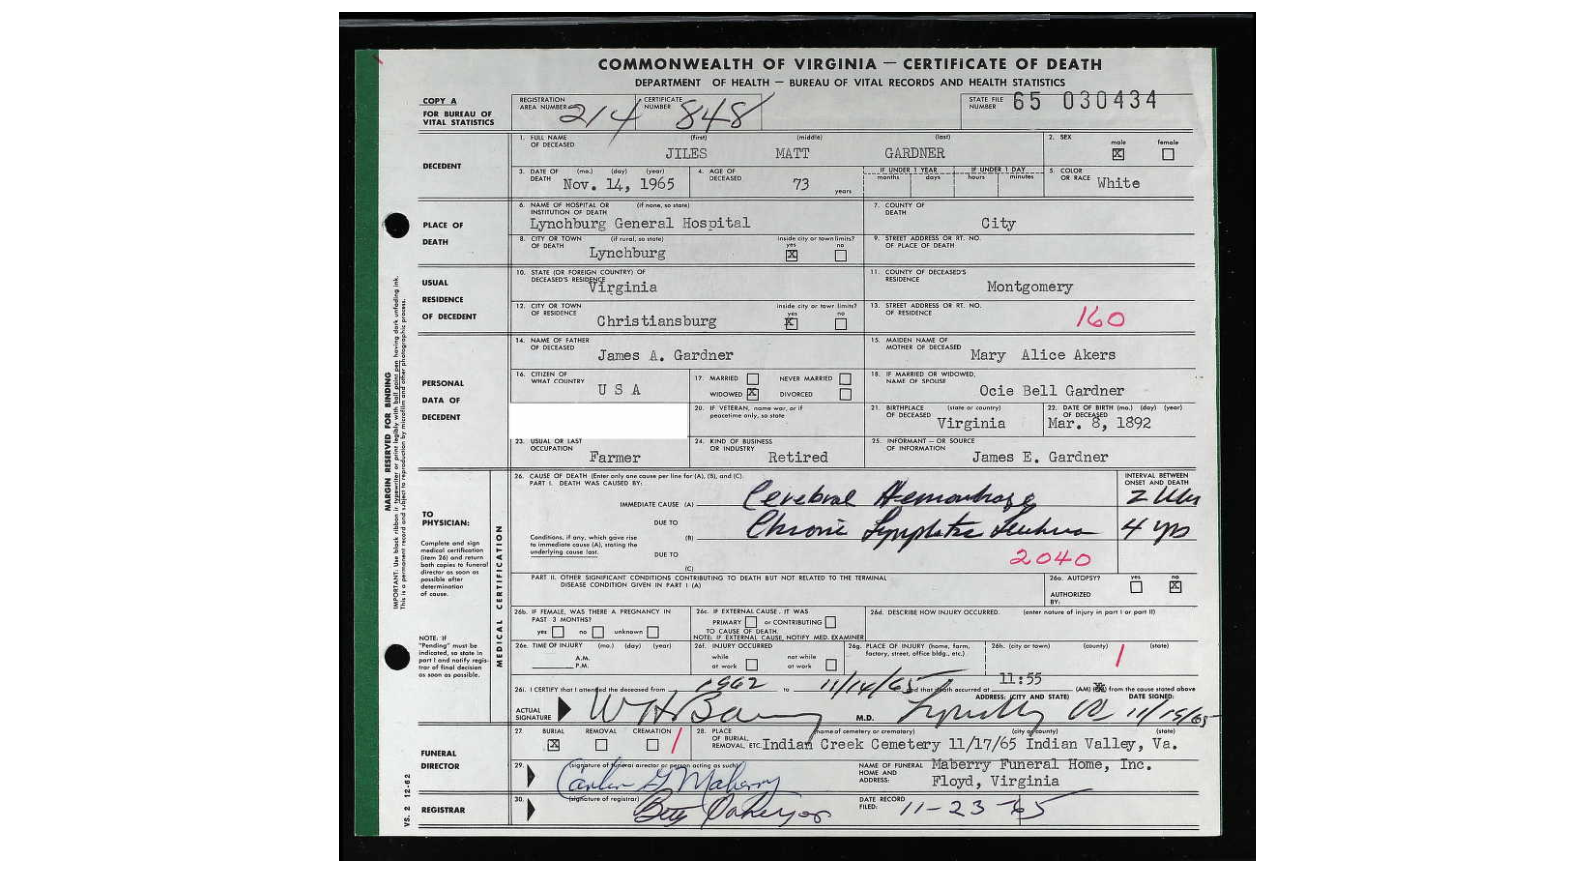 COMMONWEALTH OF VIRGINIA — CERTIFICATE OF DEATH
DEPARTMENT OF HEALTH — BUREAU OF VITAL RECORDS AND HEALTH STATISTICS
COPY A
FOR BUREAU OF
VITAL STATISTICS
REGISTRATION
AREA NUMBER 214
CERTIFICATE
NUMBER 848
STATE FILE
NUMBER 65 030434
DECEDENT
1. FULL NAME
OF DECEASED
(first) (middle) (last)
JILES MATT GARDNER
2. SEX
male female
X
3. DATE OF (mo.) (day) (year)
DEATH Nov. 14, 1965
4. AGE OF
DECEASED
73 years
IF UNDER 1 YEAR IF UNDER 1 DAY
months days hours minutes
5. COLOR
OR RACE White
PLACE OF
DEATH
6. NAME OF HOSPITAL OR (if none, so state)
INSTITUTION OF DEATH
Lynchburg General Hospital
7. COUNTY OF
DEATH
City
8. CITY OR TOWN (if rural, so state)
OF DEATH
Lynchburg
inside city or town limits?
yes no
X
9. STREET ADDRESS OR RT. NO.
OF PLACE OF DEATH
USUAL
RESIDENCE
OF DECEDENT
10. STATE (OR FOREIGN COUNTRY) OF
DECEASED'S RESIDENCE
Virginia
11. COUNTY OF DECEASED'S
RESIDENCE
Montgomery
12. CITY OR TOWN
OF RESIDENCE
Christiansburg
inside city or town limits?
yes no
X
13. STREET ADDRESS OR RT. NO.
OF RESIDENCE
160
PERSONAL
DATA OF
DECEDENT
14. NAME OF FATHER
OF DECEASED
James A. Gardner
15. MAIDEN NAME OF
MOTHER OF DECEASED
Mary Alice Akers
16. CITIZEN OF
WHAT COUNTRY
U S A
17. MARRIED NEVER MARRIED
WIDOWED X DIVORCED
18. IF MARRIED OR WIDOWED,
NAME OF SPOUSE
Ocie Bell Gardner
20. IF VETERAN, name war, or if
peacetime only, so state
21. BIRTHPLACE (state or country)
OF DECEASED
Virginia
22. DATE OF BIRTH (mo.) (day) (year)
OF DECEASED
Mar. 8, 1892
23. USUAL OR LAST
OCCUPATION
Farmer
24. KIND OF BUSINESS
OR INDUSTRY
Retired
25. INFORMANT — OR SOURCE
OF INFORMATION
James E. Gardner
MARGIN RESERVED FOR BINDING
IMPORTANT: Use black ribbon in typewriter or print legibly with ball point pen having dark unfading ink.
This is a permanent record and subject to reproduction by microfilm and other photographic process.
VS. 2 12-62
TO
PHYSICIAN:
Complete and sign
medical certification
(item 26) and return
both copies to funeral
director as soon as
possible after
determination
of cause.
NOTE: If
"Pending" must be
indicated, so state in
part I and notify regis-
trar of final decision
as soon as possible.
MEDICAL CERTIFICATION
26. CAUSE OF DEATH (Enter only one cause per line for (A), (B), and (C).
PART I. DEATH WAS CAUSED BY:
INTERVAL BETWEEN
ONSET AND DEATH
IMMEDIATE CAUSE (A) Cerebral Hemorrhage 2
DUE TO
(B) Chronic Lymphatic 4 yrs
Conditions, if any, which gave rise
to immediate cause (A), stating the
underlying cause last.
DUE TO
(C)
2040
PART II. OTHER SIGNIFICANT CONDITIONS CONTRIBUTING TO DEATH BUT NOT RELATED TO THE TERMINAL
DISEASE CONDITION GIVEN IN PART I (A)
26a. AUTOPSY? yes no
X
AUTHORIZED
BY:
26b. IF FEMALE, WAS THERE A PREGNANCY IN
PAST 3 MONTHS?
yes no unknown
26c. IF EXTERNAL CAUSE, IT WAS
PRIMARY or CONTRIBUTING
TO CAUSE OF DEATH.
NOTE: IF EXTERNAL CAUSE, NOTIFY MED. EXAMINER
26d. DESCRIBE HOW INJURY OCCURRED. (enter nature of injury in part I or part II)
26e. TIME OF INJURY (mo.) (day) (year)
A.M.
P.M.
26f. INJURY OCCURRED
while not while
at work at work
26g. PLACE OF INJURY (home, farm,
factory, street, office bldg., etc.)
26h. (city or town) (county) (state)
26i. I CERTIFY that I attended the deceased from 1962 to 11/14/65 and that death occurred at 11:55 (AM) from the cause stated above
ACTUAL
SIGNATURE
M.D.
ADDRESS: (CITY AND STATE) DATE SIGNED:
11/15/65
FUNERAL
DIRECTOR
27. BURIAL REMOVAL CREMATION
X
28. PLACE
OF BURIAL,
REMOVAL, ETC.
(name of cemetery or crematory) (city or county) (state)
Indian Creek Cemetery 11/17/65 Indian Valley, Va.
29. (signature of funeral director or person acting as such)
NAME OF FUNERAL
HOME AND
ADDRESS:
Maberry Funeral Home, Inc.
Floyd, Virginia
REGISTRAR
30. (signature of registrar)
DATE RECORD
FILED: 11-23-65